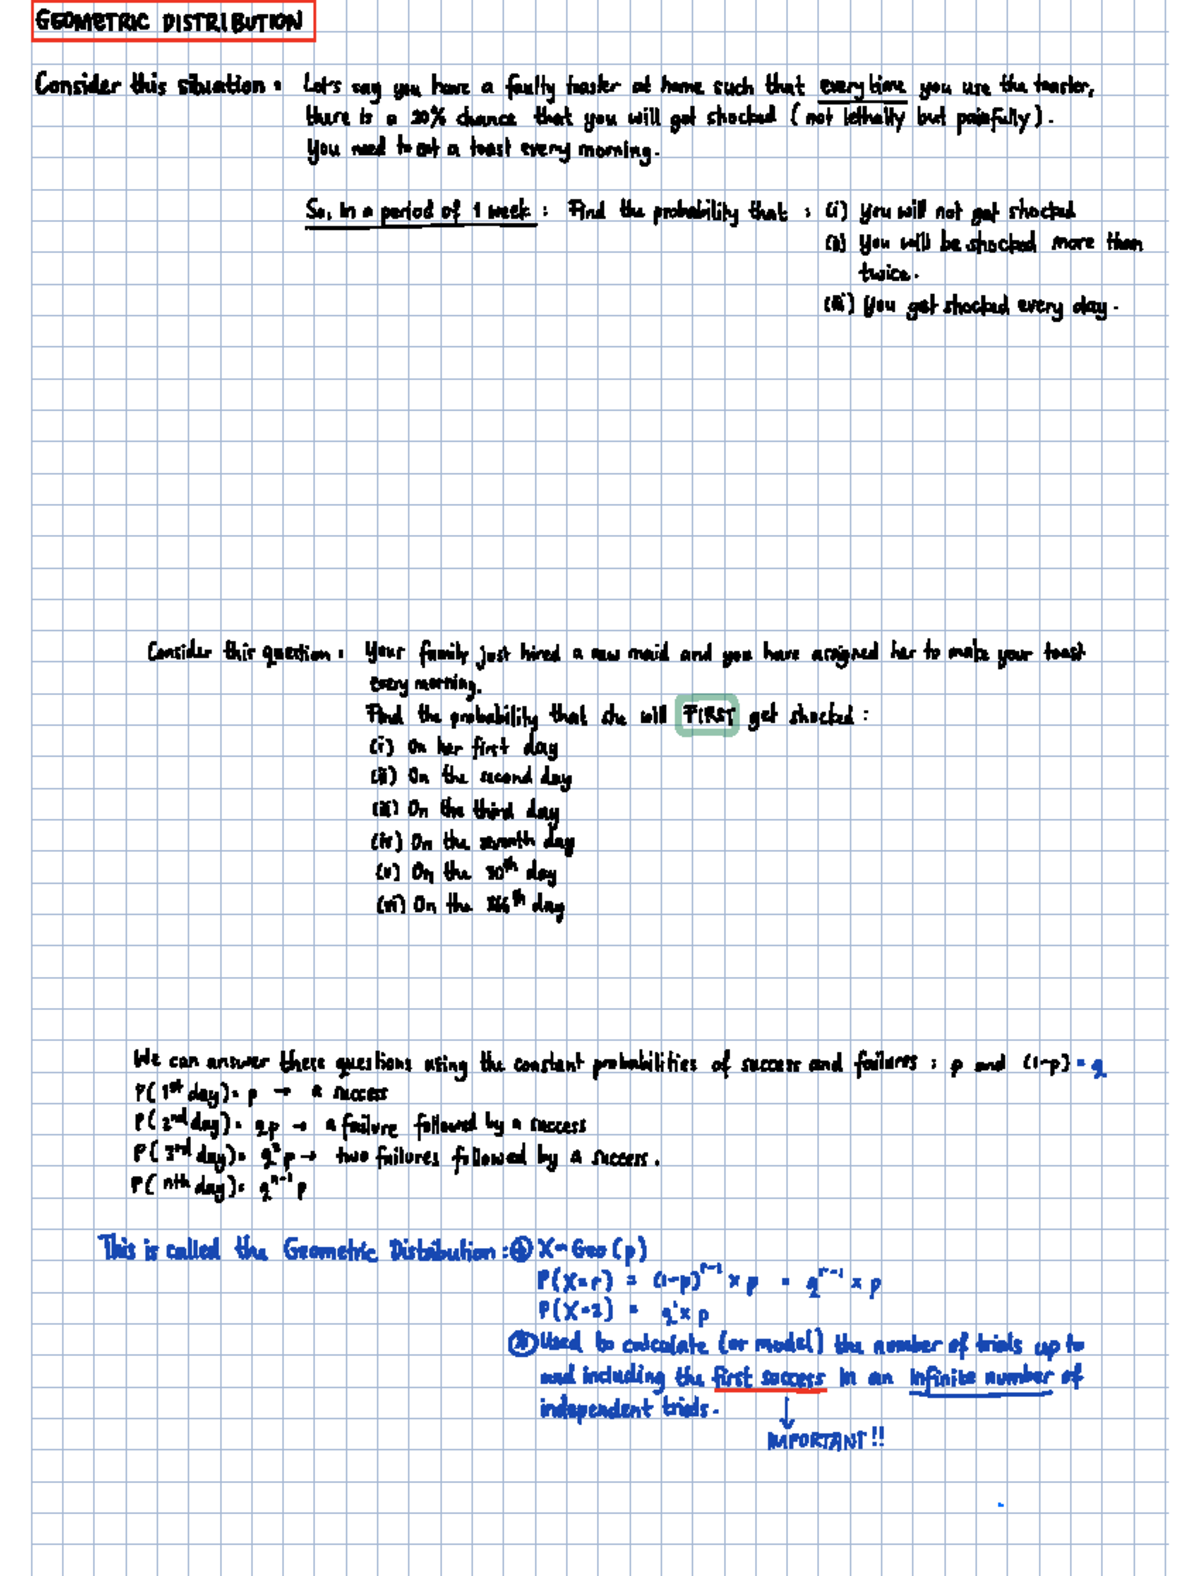 GEOMETRIC DISTRIBUTION
Consider this situation : Let's say you have a faulty toaster at home such that every time you use the toaster,
there is a 20% chance that you will get shocked (not lethally but painfully).
You need to eat a toast every morning.
So, in a period of 1 week : Find the probability that : (i) you will not get shocked
(ii) You will be shocked more than
twice.
(iii) You get shocked every day.
Consider this question : Your family just hired a new maid and you have assigned her to make your toast
every morning.
Find the probability that she will FIRST get shocked :
(i) On her first day
(ii) On the second day
(iii) On the third day
(iv) On the seventh day
(v) On the 30th day
(vi) On the day
We can answer these questions using the constant probabilities of success and failures : p and (1-p) = q
P(1st day) = p → a success
P(2nd day) = qp → a failure followed by a success
P(3rd day) = q²p → two failures followed by a success.
P(nth day) = qⁿ⁻¹p
This is called the Geometric Distribution : X~Geo(p)
P(X=r) = (1-p)^(r-1) × p = q^(r-1) × p
P(X=2) = q¹× p
Used to calculate (or model) the number of trials up to
and including the first success in an infinite number of
independent trials.
↓
IMPORTANT!!